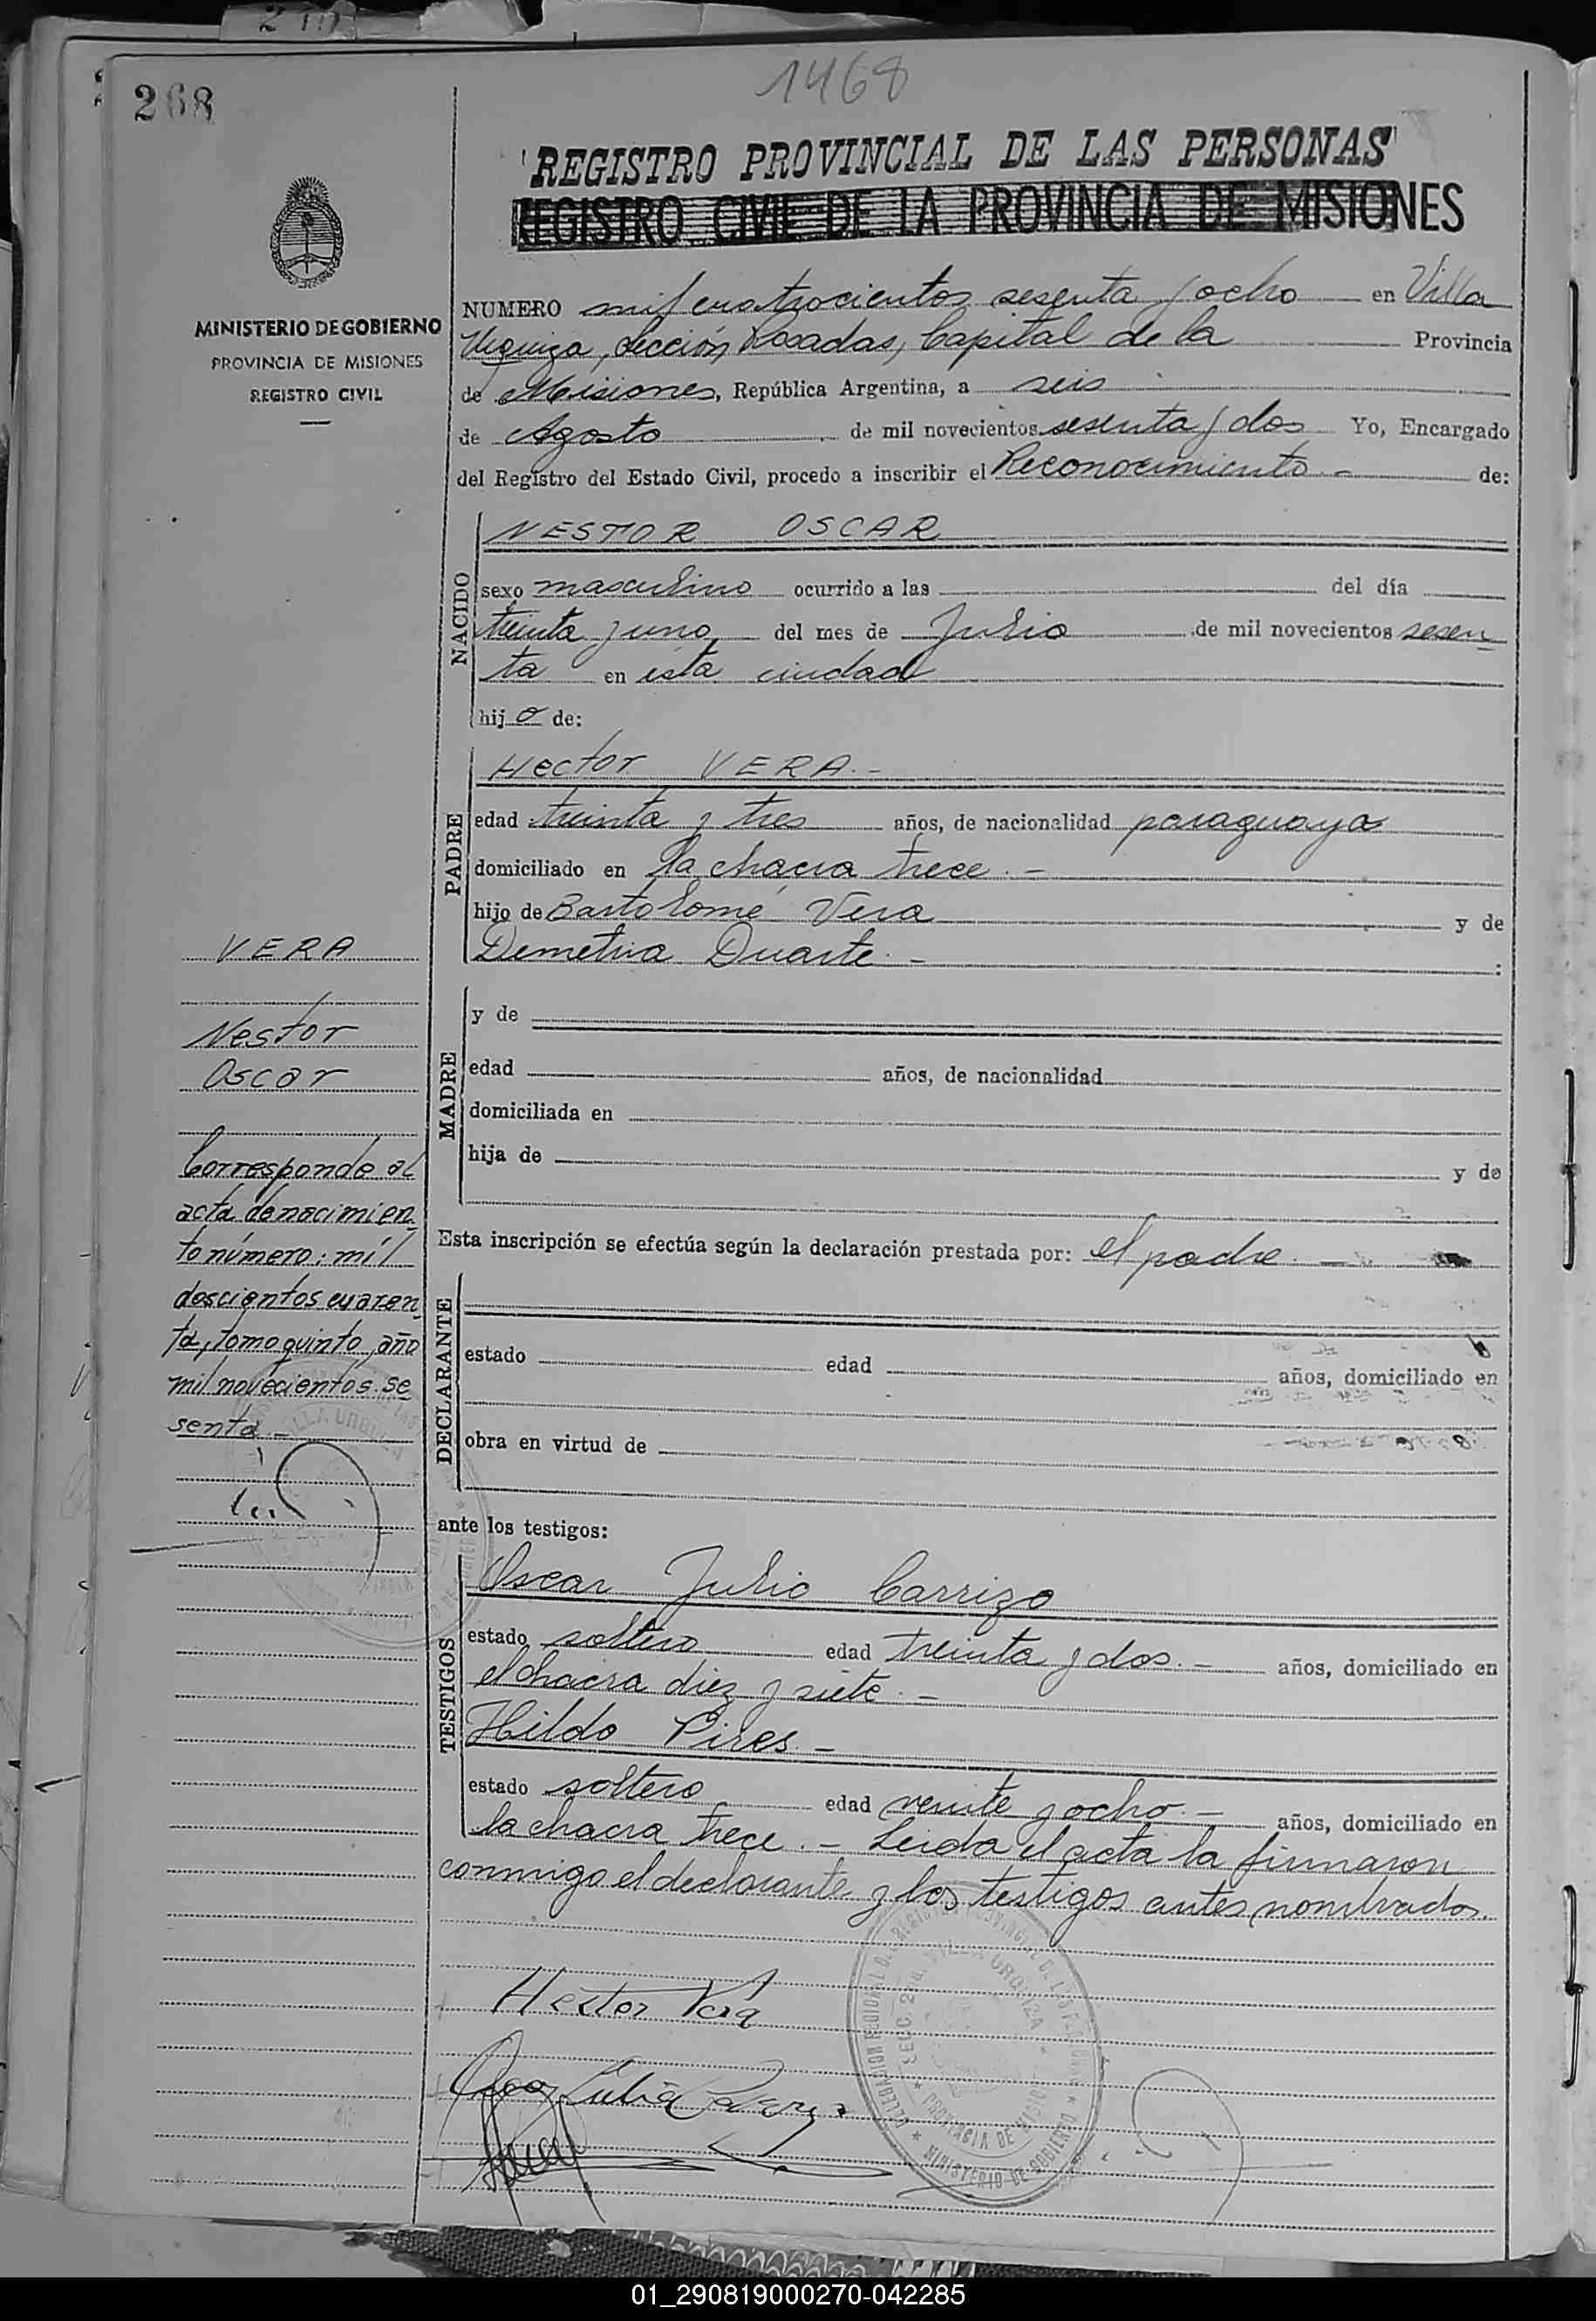 268
1468
"REGISTRO PROVINCIAL DE LAS PERSONAS"
REGISTRO CIVIL DE LA PROVINCIA DE MISIONES
MINISTERIO DE GOBIERNO
PROVINCIA DE MISIONES
REGISTRO CIVIL
NUMERO mil cuatrocientos sesenta y ocho en Villa
Urquiza, sección Posadas, Capital de la Provincia
de Misiones, República Argentina, a seis
de Agosto de mil novecientos sesenta y dos Yo, Encargado
del Registro del Estado Civil, procedo a inscribir el Reconocimiento.- de:
NACIDO
NESTOR OSCAR
sexo masculino ocurrido a las del día
treinta y uno del mes de Julio de mil novecientos sesen
ta en ésta ciudad
hijo de:
PADRE
Hector VERA.-
edad treinta y tres años, de nacionalidad paraguaya
domiciliado en la chacra trece.-
hijo de Bartolomé Vera y de
Demetria Duarte.- :
VERA
Nestor
Oscar
Corresponde al
acta de nacimien
to número: mil
doscientos cuaren
ta, tomo quinto, año
mil novecientos se
senta.-
MADRE
y de
edad años, de nacionalidad
domiciliada en
hija de y de
Esta inscripción se efectúa según la declaración prestada por: el padre.-
DECLARANTE
estado edad años, domiciliado en
obra en virtud de
ante los testigos:
TESTIGOS
Oscar Julio Carrizo
estado soltero edad treinta y dos.- años, domiciliado en
el chacra diez y siete.-
Hildo Pires.-
estado soltero edad veinte y ocho.- años, domiciliado en
la chacra trece.- Leida el acta la firmaron
conmigo el declarante y los testigos antes nombrados.
Hector Vera
DELEGACION REGIONAL DEL REGISTRO PROVINCIAL DE LAS PERSONAS
SECC. 2da. VILLA URQUIZA
PROVINCIA DE MISIONES
MINISTERIO DE GOBIERNO
01_290819000270-042285